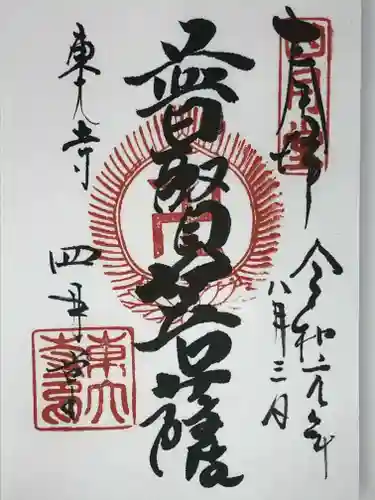 四月堂
令和元年
八月三日
普賢菩薩
東大寺
四月堂
東大
寺印